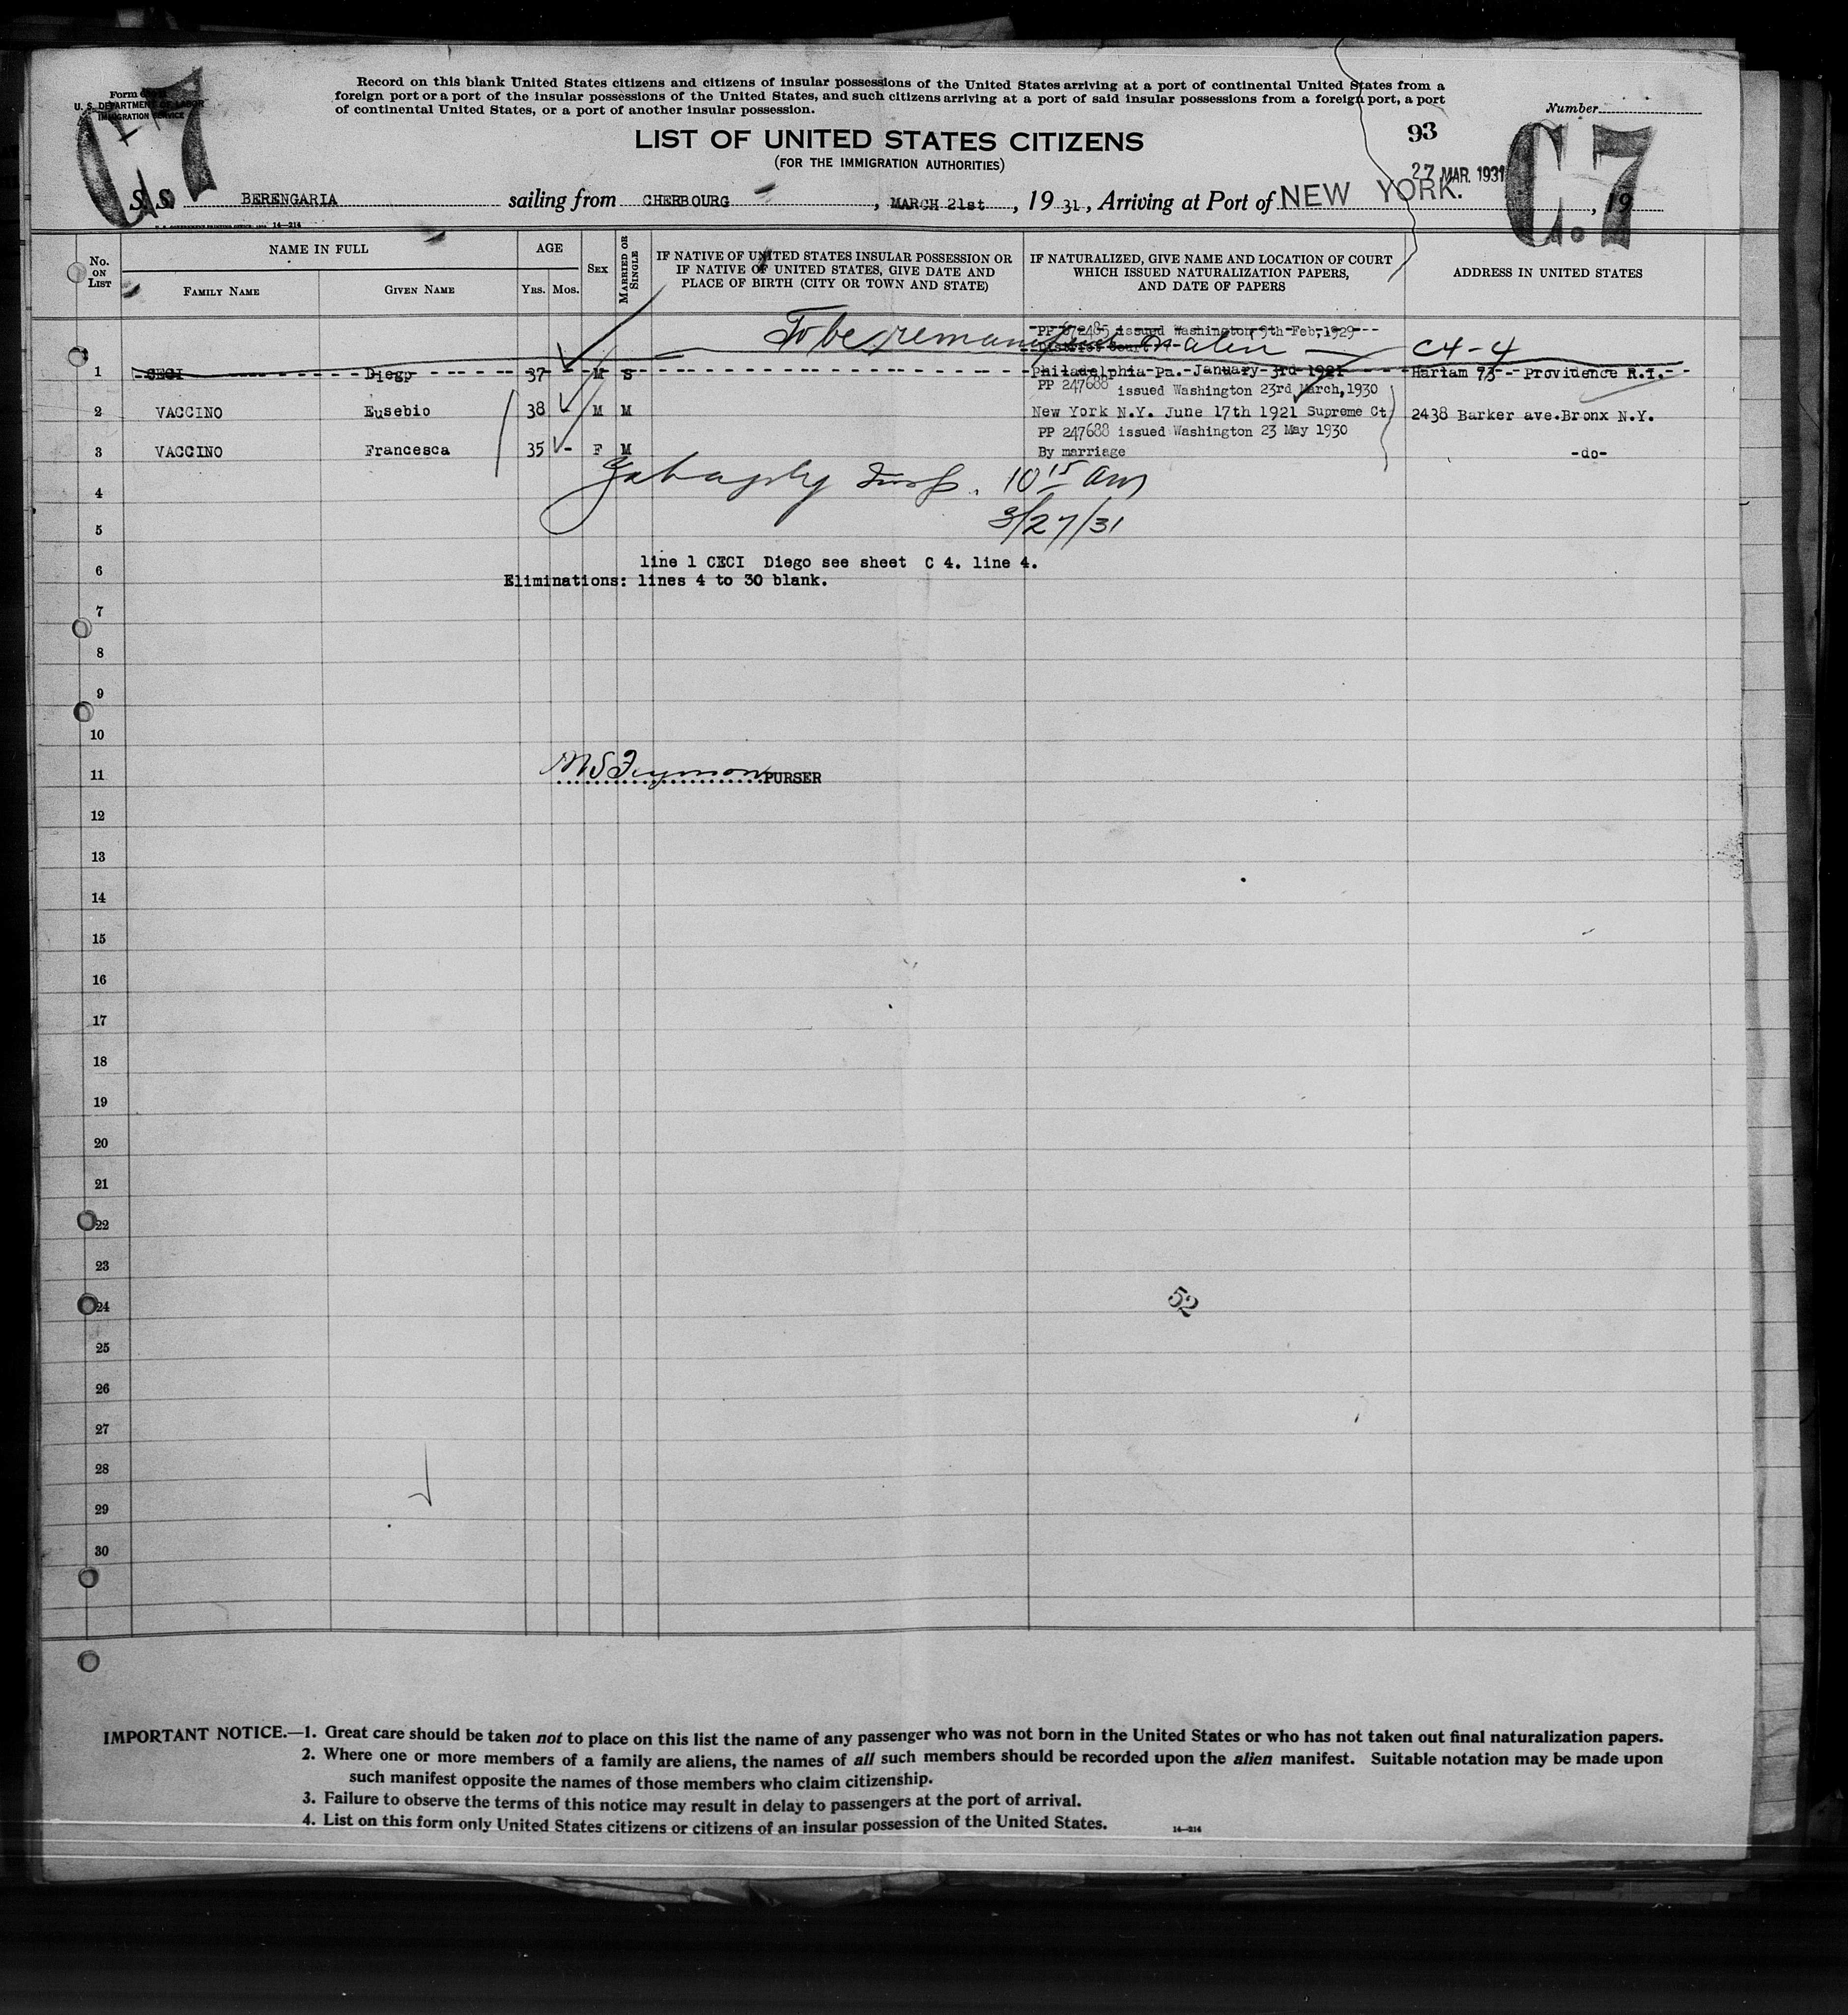 Form
U. S. DEPARTMENT OF LABOR
IMMIGRATION SERVICE
C.7
Record on this blank United States citizens and citizens of insular possessions of the United States arriving at a port of continental United States from a
foreign port or a port of the insular possessions of the United States, and such citizens arriving at a port of said insular possessions from a foreign port, a port
of continental United States, or a port of another insular possession.
Number
LIST OF UNITED STATES CITIZENS
(FOR THE IMMIGRATION AUTHORITIES)
93
C.7
27 MAR. 1931
S. S. BERENGARIA sailing from CHERBOURG, MARCH 21st, 19 31, Arriving at Port of NEW YORK. , 19
14—214
No. ON LIST
NAME IN FULL
FAMILY NAME
GIVEN NAME
AGE
YRS. MOS.
SEX
MARRIED OR SINGLE
IF NATIVE OF UNITED STATES INSULAR POSSESSION OR
IF NATIVE OF UNITED STATES, GIVE DATE AND
PLACE OF BIRTH (CITY OR TOWN AND STATE)
IF NATURALIZED, GIVE NAME AND LOCATION OF COURT
WHICH ISSUED NATURALIZATION PAPERS,
AND DATE OF PAPERS
ADDRESS IN UNITED STATES
To be remanifest an alien C4-4
PP 672485 issued Washington 9th Feb, 1929
District Court
1 CECI Diego 37 M S Philadelphia Pa. January 3rd 1921 Harlam 93 Providence R.I.
PP 247688 issued Washington 23rd March, 1930
2 VACCINO Eusebio 38 - M M New York N.Y. June 17th 1921 Supreme Ct 2438 Barker ave. Bronx N.Y.
PP 247688 issued Washington 23 May 1930
3 VACCINO Francesca 35 - F M By marriage -do-
4 Insp. 10 15 am
5 3/27/31
line 1 CECI Diego see sheet C 4. line 4.
6 Eliminations: lines 4 to 30 blank.
7
8
9
10
11 PURSER
12
13
14
15
16
17
18
19
20
21
22
23
24
52
25
26
27
28
29
30
IMPORTANT NOTICE.—1. Great care should be taken not to place on this list the name of any passenger who was not born in the United States or who has not taken out final naturalization papers.
2. Where one or more members of a family are aliens, the names of all such members should be recorded upon the alien manifest. Suitable notation may be made upon
such manifest opposite the names of those members who claim citizenship.
3. Failure to observe the terms of this notice may result in delay to passengers at the port of arrival.
4. List on this form only United States citizens or citizens of an insular possession of the United States.
14—214